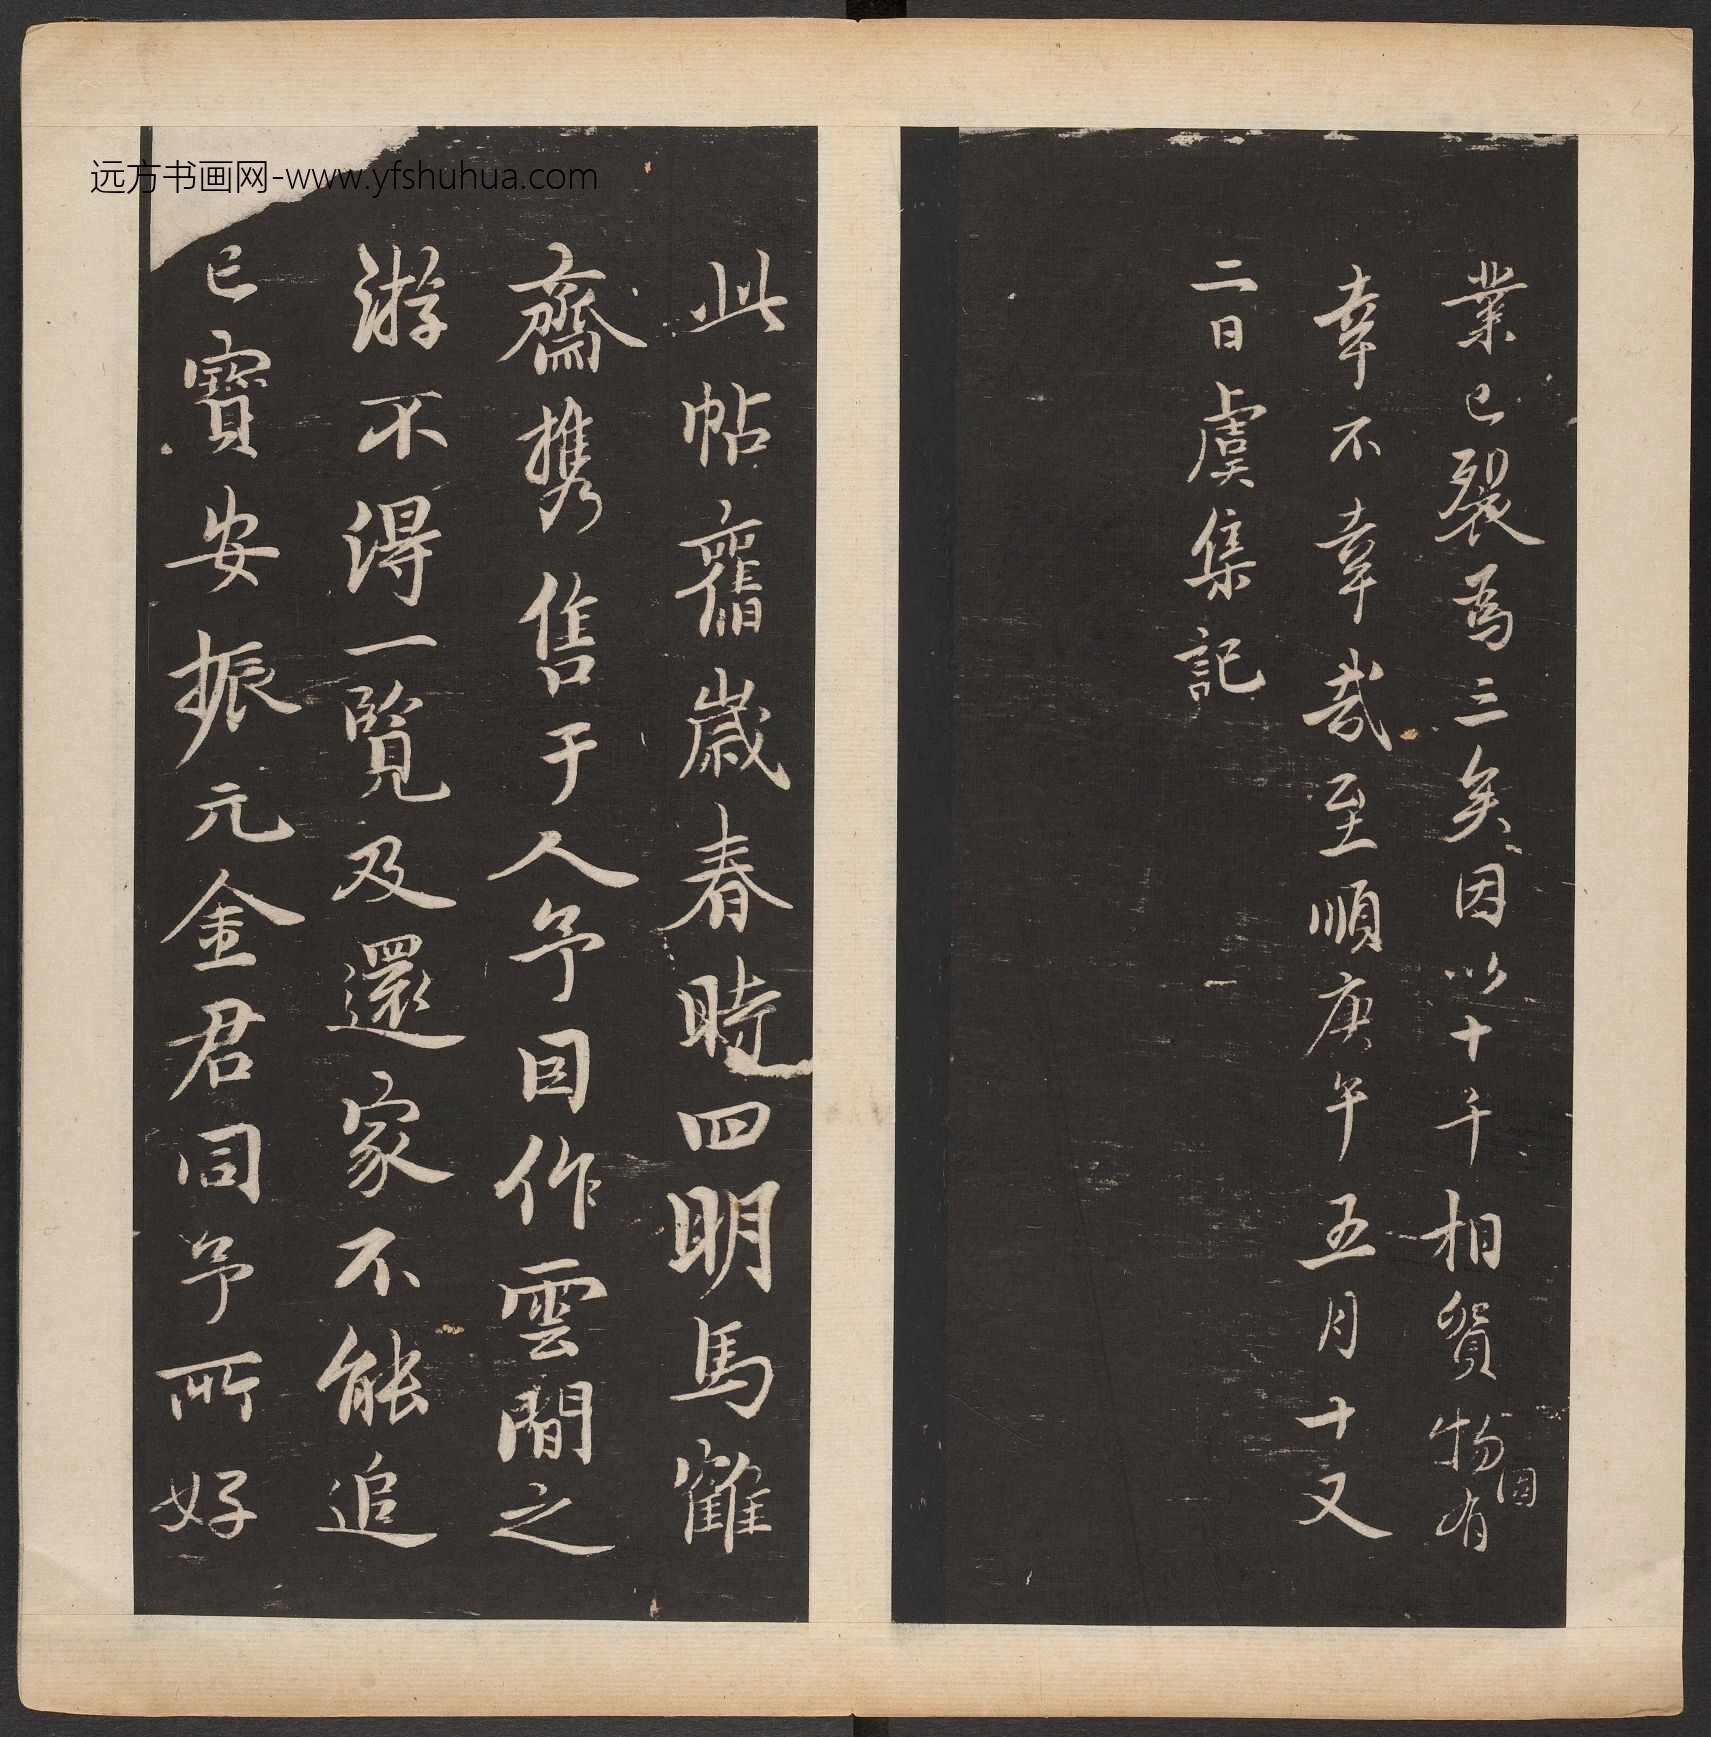 業已裂爲三矣因以十千相貿物固有
幸不幸哉至順庚午五月十又
二日虞集記
此帖舊歲春時四明馬鶴
齋携售于人予因作雲間之
游不得一覽及還家不能追
已寶安振元金君同予所好
远方书画网-www.yfshuhua.com